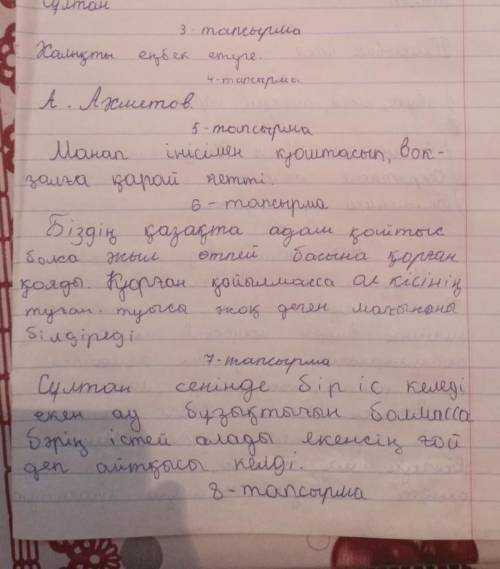 Сұлтан
3-тапсырма
Халықты еңбек етуге.
4-тапсырма.
А. Ахметов.
5-тапсырма
Манап інісімен қоштасып, вок-
залға қарай кетті
6-тапсырма
Біздің қазақта адам қайтыс
болса жыл өтпей басына қорған
қояды. Қорған қойылмасса ол кісінің
туған туысы жоқ деген мағынаны
білдіреді
7-тапсырма
Сұлтан сенінде бір іс келеді
екен ау бұзықтығың болмасса
бәрің істей алады екенсің ғой
деп айтқысы келді.
8-тапсырма